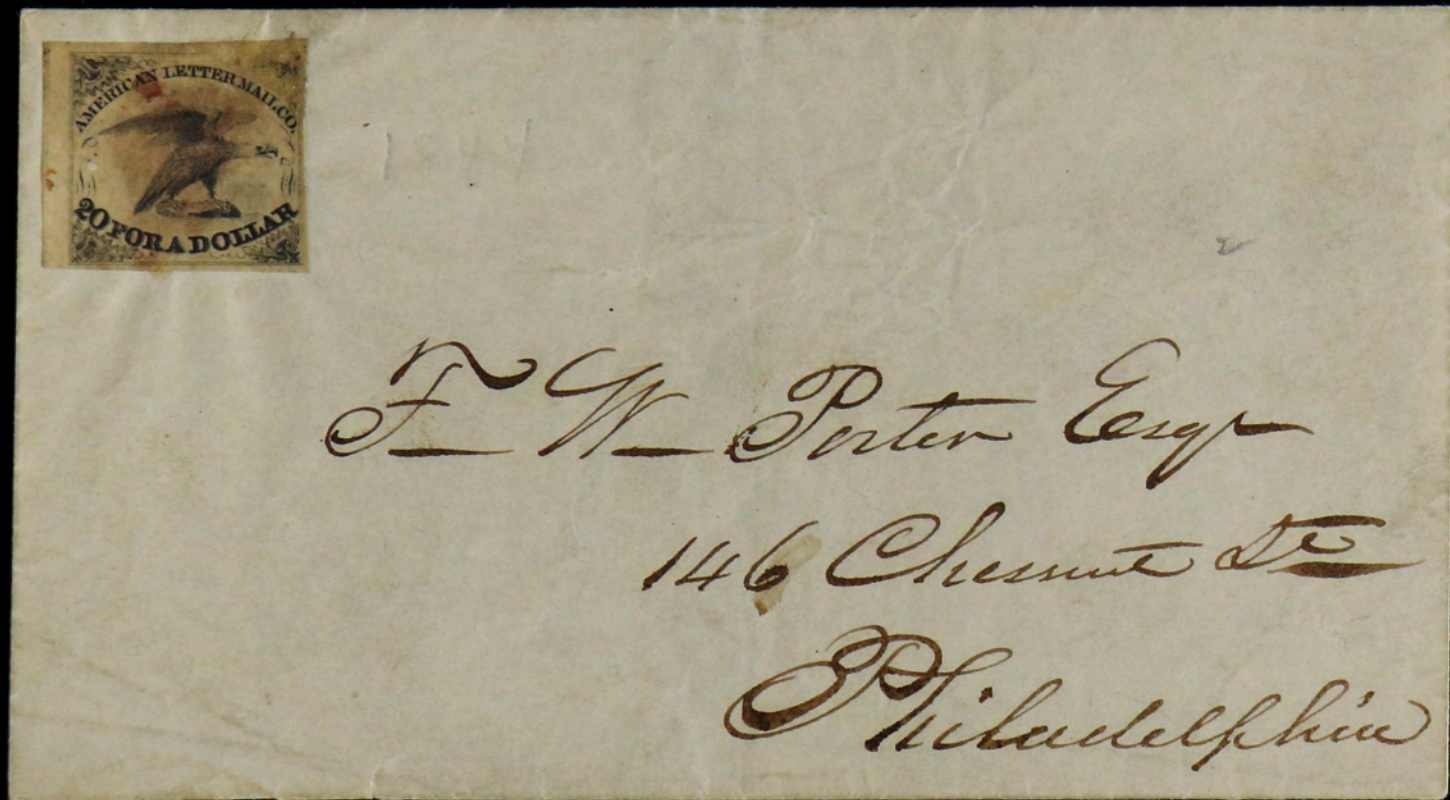 AMERICAN LETTER MAIL CO.
20 FOR A DOLLAR
1844
2
F W Porter Esqr
146 Chesnut St
Philadelphia